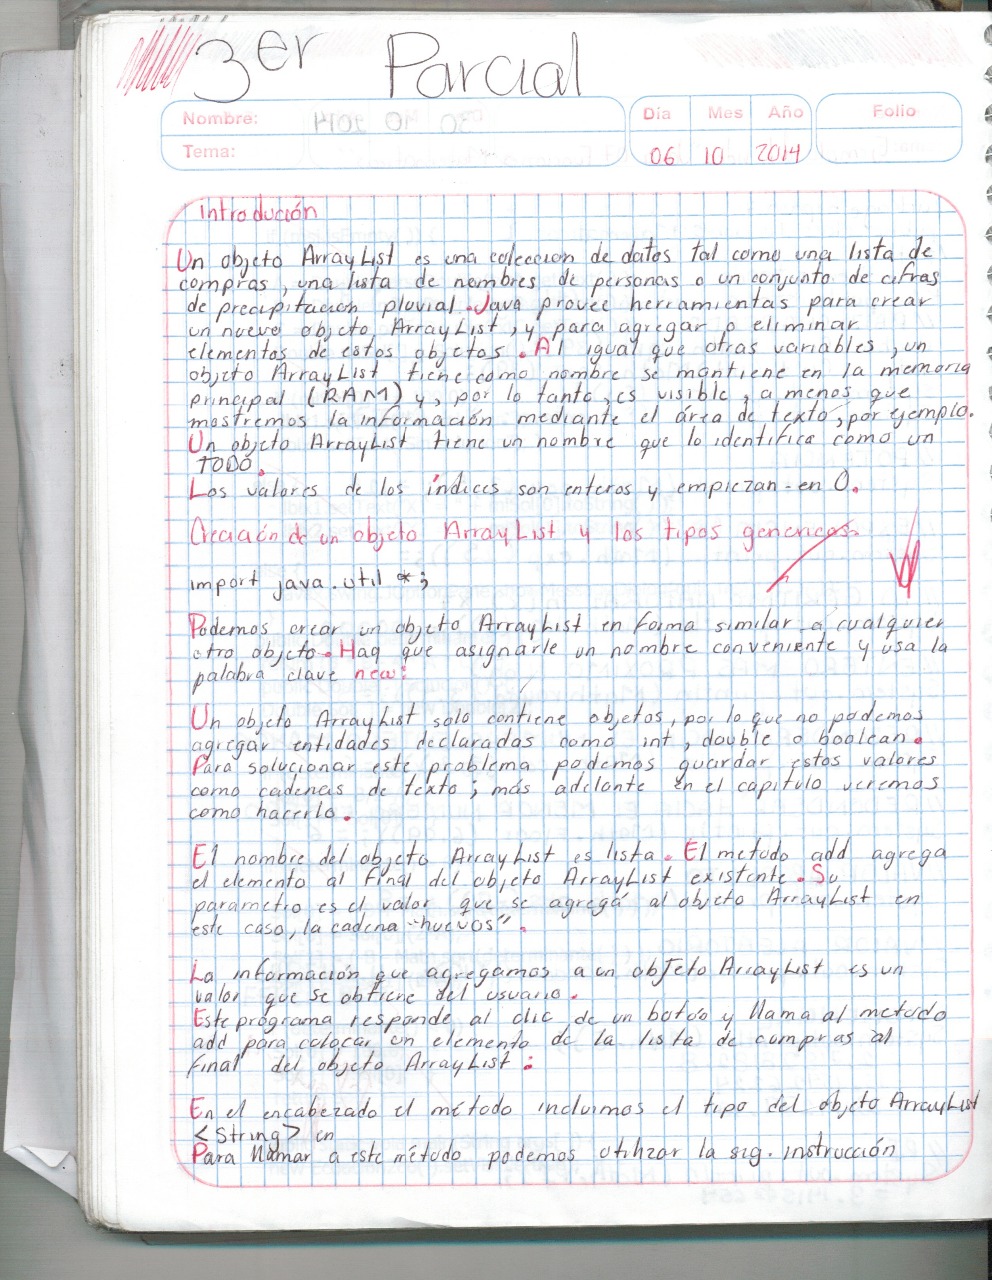 3er Parcial
Nombre:
Tema:
Dia Mes Año
06 10 2014
Folio
Introdución
Un objeto ArrayList es una coleccion de datos tal como una lista de
compras, una lista de nombres de personas o un conjunto de cifras
de precipitacion pluvial. Java provee herramientas para crear
un nuevo objeto ArrayList, y para agregar o eliminar
elementos de estos objetos. Al igual que otras variables, un
objeto ArrayList tiene como nombre se mantiene en la memoria
principal (RAM) y, por lo tanto, es visible, a menos que
mostremos la información mediante el área de texto, por ejemplo.
Un objeto ArrayList tiene un nombre que lo identifica como un
TODO.
Los valores de los índices son enteros y empiezan en 0.
Creación de un objeto ArrayList y los tipos genericos.
import java.util *;
Podemos crear un objeto ArrayList en forma similar a cualquier
otro objeto. Haq que asignarle un nombre conveniente y usa la
palabra clave new:
Un objeto ArrayList solo contiene objetos, por lo que no podemos
agregar entidades declaradas como int, double o boolean.
Para solucionar este problema podemos guardar estos valores
como cadenas de texto; más adelante en el capitulo veremos
como hacerlo.
El nombre del objeto ArrayList es lista. El metodo add agrega
el elemento al final del objeto ArrayList existente. Su
parametro es el valor que se agrega al objeto ArrayList en
este caso, la cadena "huevos".
La información que agregamos a un objeto ArrayList es un
valor que se obtiene del usuario.
Este programa responde al clic de un botón y llama al metodo
add para colocar un elemento de la lista de compras al
final del objeto ArrayList:
En el encabezado el método incluimos el tipo del objeto ArrayList
<String> en
Para llamar a este método podemos utilizar la sig. instrucción